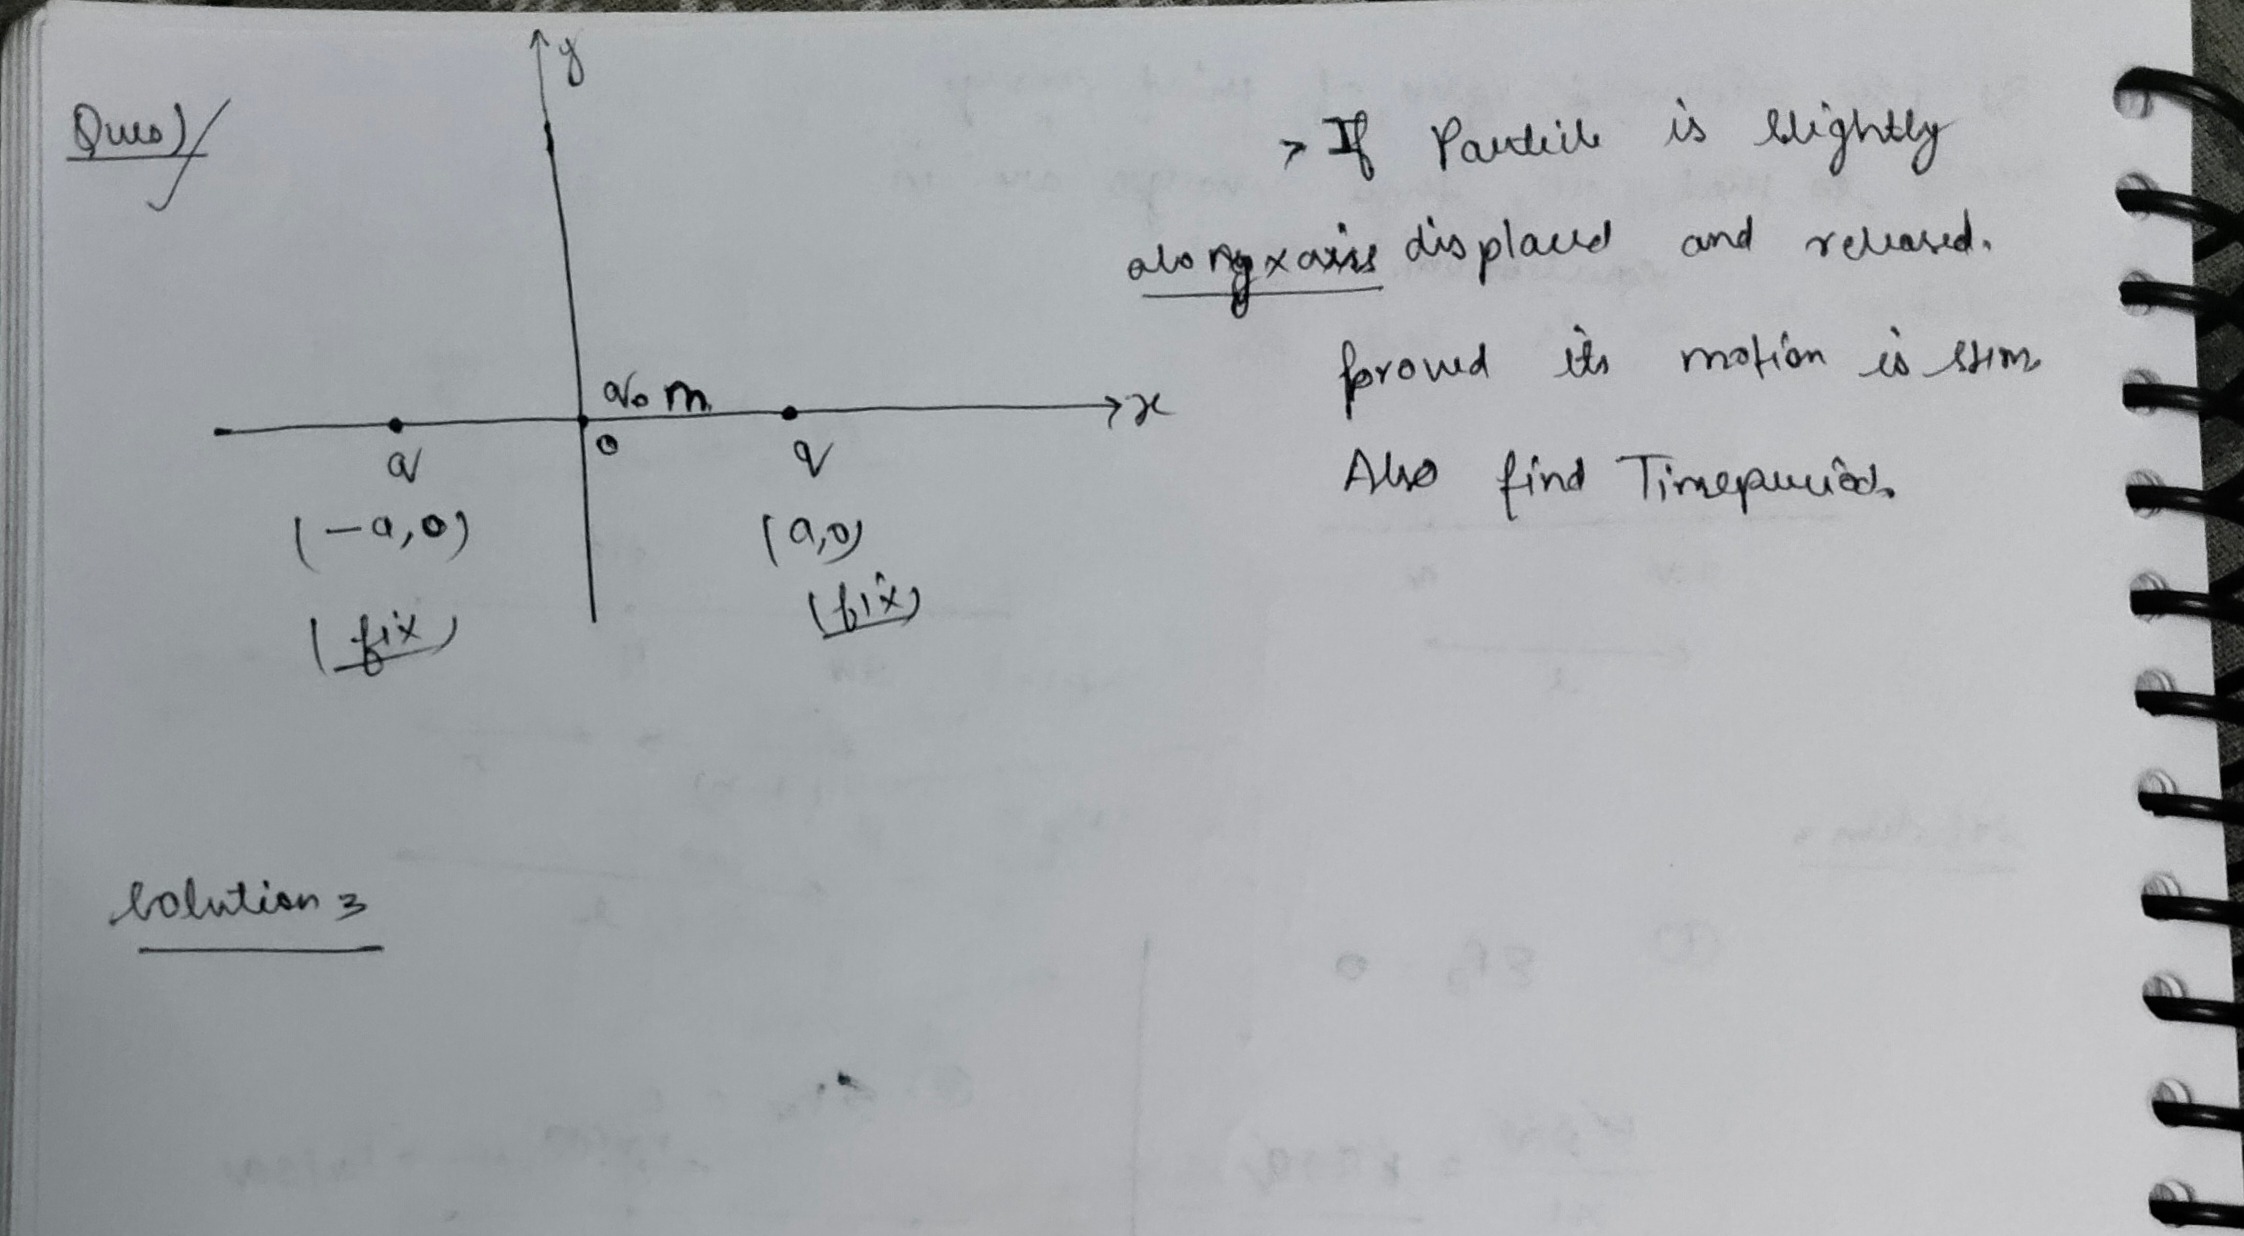 Ques)
y
q₀ m
x
o
q
q
(-a,0)
(a,0)
(fix)
(fix)
> If Particle is slightly
along x axis displaced and released.
proved its motion is SHM
Also find Timeperiod.
Solution